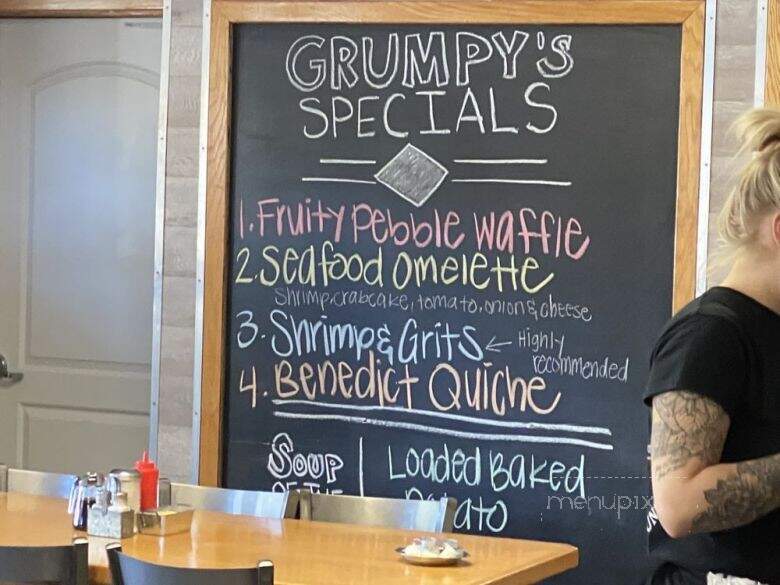 GRUMPY'S
SPECIALS
1. Fruity Pebble Waffle
2. Seafood Omelette
Shrimp, crabcake, tomato, onion & cheese
3. Shrimp & Grits ← Highly
recommended
4. Benedict Quiche
Soup
OF THE
Loaded Baked
Potato
menupix